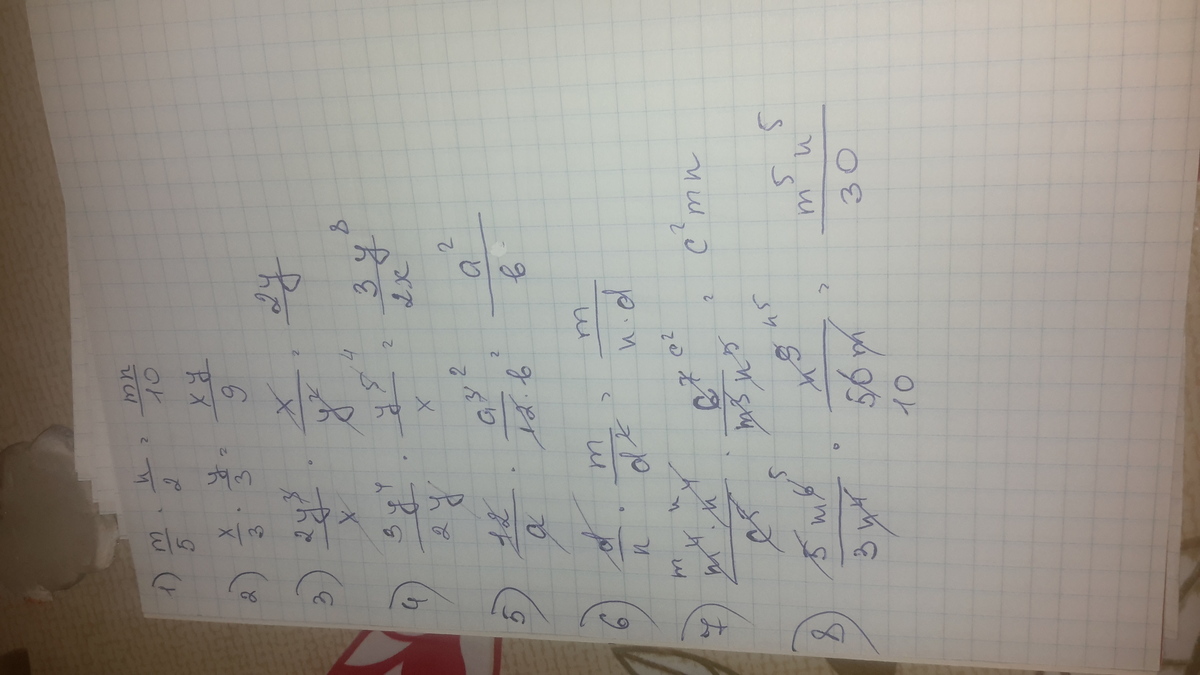 1) m/5 · n/2 = mn/10
2) x/3 · y/3 = xy/9
3) 2y³/x · x/y² = 2y
4) 3y⁴/2y · y⁵ ⁴/x = 3y⁸/2x
5) 12/a · a³ ²/12·b = a²/b
6) d/n · m/d² = m/n·d
7) m m⁴·n⁴ n⁴/c⁵ · c⁷ c²/m³n³ = c²mn
8) 5m⁶ ⁵/3n⁴ · n⁹ n⁵/50m 10 = m⁵n⁵/30